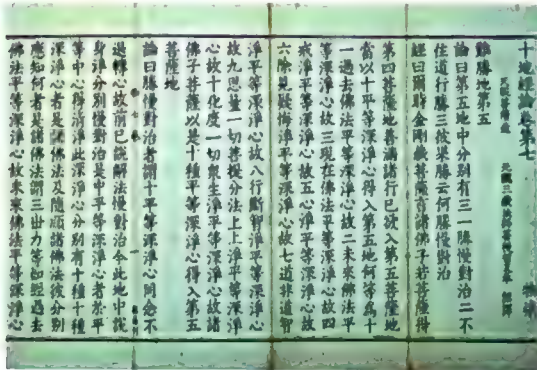 十地經論卷第七
難勝地第五
論曰第五地中分別有三一勝慢對治二不
住道行勝三彼果勝云何勝慢對治
經曰爾時金剛藏菩薩言諸佛子若菩薩得
第四菩薩地善滿諸行已欲入第五菩薩地
當以十平等深淨心得入第五地何等為十
一過去佛法平等深淨心故二未來佛法平
等深淨心故三現在佛法平等深淨心故四
戒淨平等深淨心故五心淨平等深淨心故
六除見疑悔淨平等深淨心故七道非道智
淨平等深淨心故八行斷智淨平等深淨心
故九思量一切菩提分法上上淨平等深淨
心故十化度一切眾生淨平等深淨心故諸
佛子菩薩以是十種平等深淨心得入第五
菩薩地
論曰勝慢對治者謂十平等深淨心同念不
退轉心故前已說解法慢對治今此地中說
身淨分別慢對治是中平等深淨心者於平
等中心得清淨此深淨心分別有十種十種
深淨心者是諸佛法及隨順諸佛法彼分別
應知何者是諸佛法謂三世力等如經過去
佛法平等深淨心故未來佛法平等深淨心